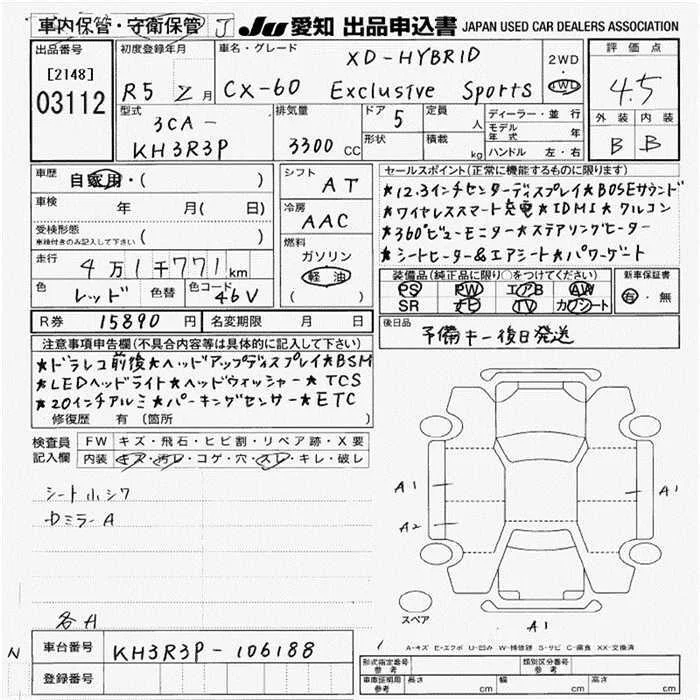 車内保管・守衛保管 J JU 愛知 出品申込書 JAPAN USED CAR DEALERS ASSOCIATION
出品番号 初度登録年月 車名・グレード XD-HYBRID 2WD・4WD 評価点
[2148] 03112 R5 2月 CX-60 Exclusive Sports 4.5
型式 3CA- 排気量 ドア 5 定員 人 ディーラー・並行 外装 内装
KH3R3P 3300 CC 形状 積載 kg モデル年式 年 B B
ハンドル 左・右
車歴 自家用・( ) シフト AT セールスポイント(正常に機能するものに限ります)
車検 年 月( 日) 冷房 AAC ★12.3インチセンターディスプレイ★BOSEサウンド
受検形態 ( ) ★ワイヤレススマート充電★1DM1★クルコン
車検付きのみ記入して下さい 燃料 ★360°ビューモニター★ステアリングヒーター
走行 4万1千771km ガソリン ★シートヒーター&エアシート★パワーゲート
軽油 ( ) 装備品(純正品に限り○をつけてください) 新車保証書
色 レッド 色替 色コード 46V PS PW エアB AW 有・無
SR ナビ TV カワシート
R券 15890円 名変期限 月 日 後日品 予備キー後日発送
注意事項申告欄(不具合内容等は具体的に記入して下さい)
★ドラレコ前後★ヘッドアップディスプレイ★BSM
★LEDヘッドライト★ヘッドウォッシャー★TCS
★20インチアルミ★パーキングセンサー★ETC
修復歴 有(箇所 )
検査員記入欄 FW キズ・飛石・ヒビ割・リペア跡・X要
内装 キズ・汚レ・コゲ・穴・スレ・キレ・破レ
シート小シワ A1 A1
Dミラー A A2
スペア A1
各A
A-キズ E-エクボ U-凹み W-補修跡 S-サビ C-腐食 XX-交換済
N 車台番号 KH3R3P-106188 形式指定番号 参考 類別区分番号 参考
登録番号 車庫証明用 参考 長さ cm 幅 cm 高さ cm